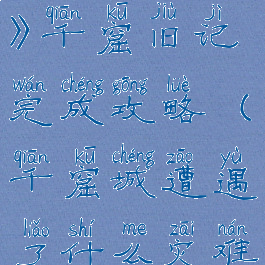 qiān kū jiù jì
》千窟旧记
wán chéng gōng lüè
完成攻略（
qiān kū chéng zāo yù
千窟城遭遇
liǎo shí me zāi nán
了什么灾难